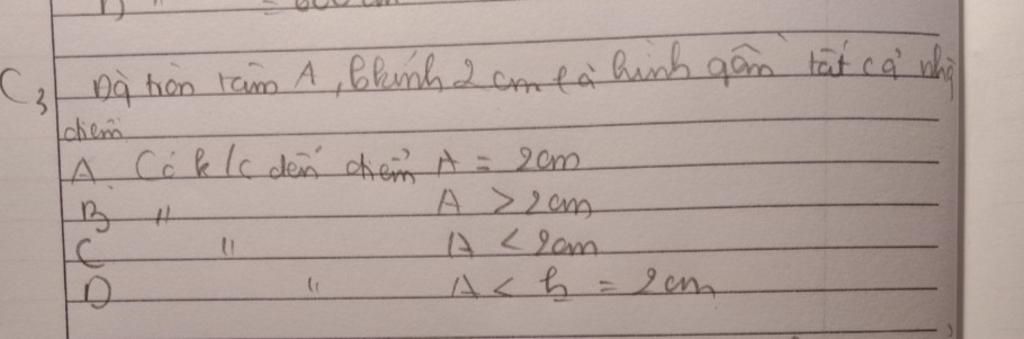 = 600 cm
C3 Đg tròn tâm A, bkính 2 cm là hình gồm tất cả nhg
điểm
A. Có k/c đến điểm A = 2cm
B " A > 2cm
C " A < 2cm
D " A < b = 2cm